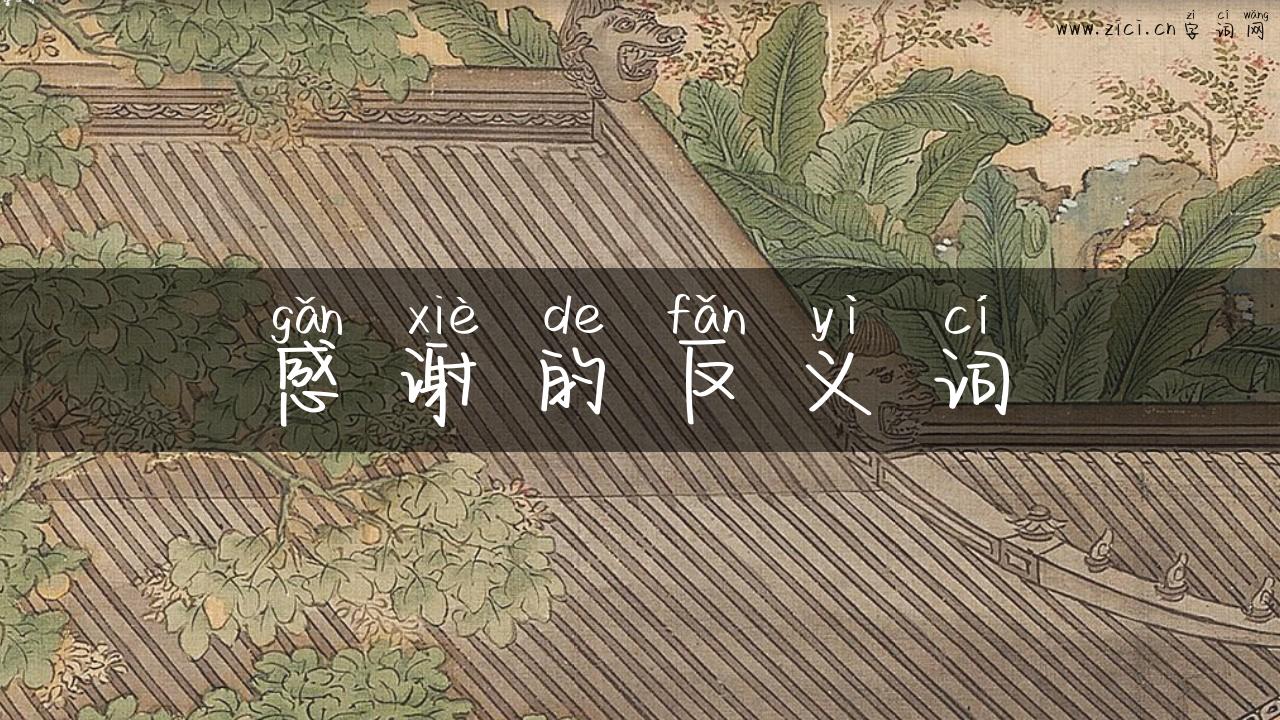 zì cí wǎng
www.zici.cn 字词网
gǎn xiè de fǎn yì cí
感谢的反义词